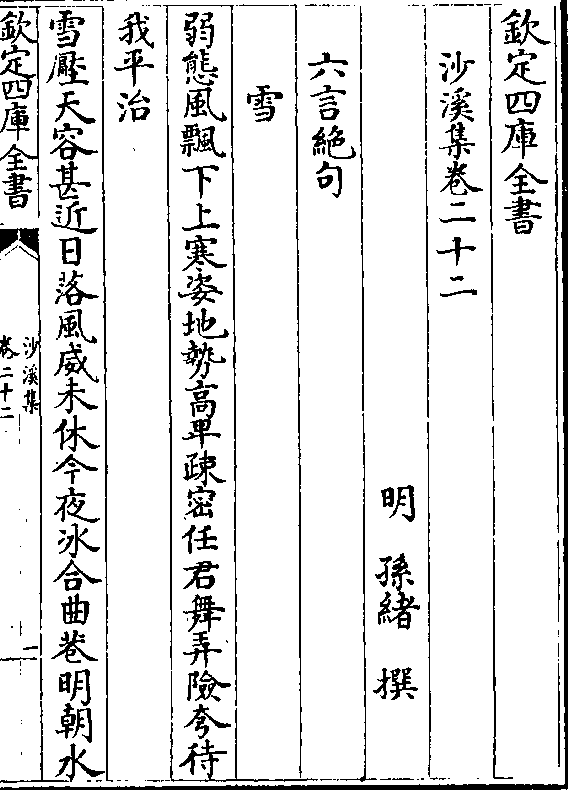 欽定四庫全書
沙溪集卷二十二
明　孫緒　撰
六言絶句
雪
弱態風飄下上寒姿地勢高卑疎密任君舞弄險夸待
我平治
雪壓天容甚近日落風威未休今夜冰合曲巷明朝水
欽定四庫全書
沙溪集
卷二十二
一